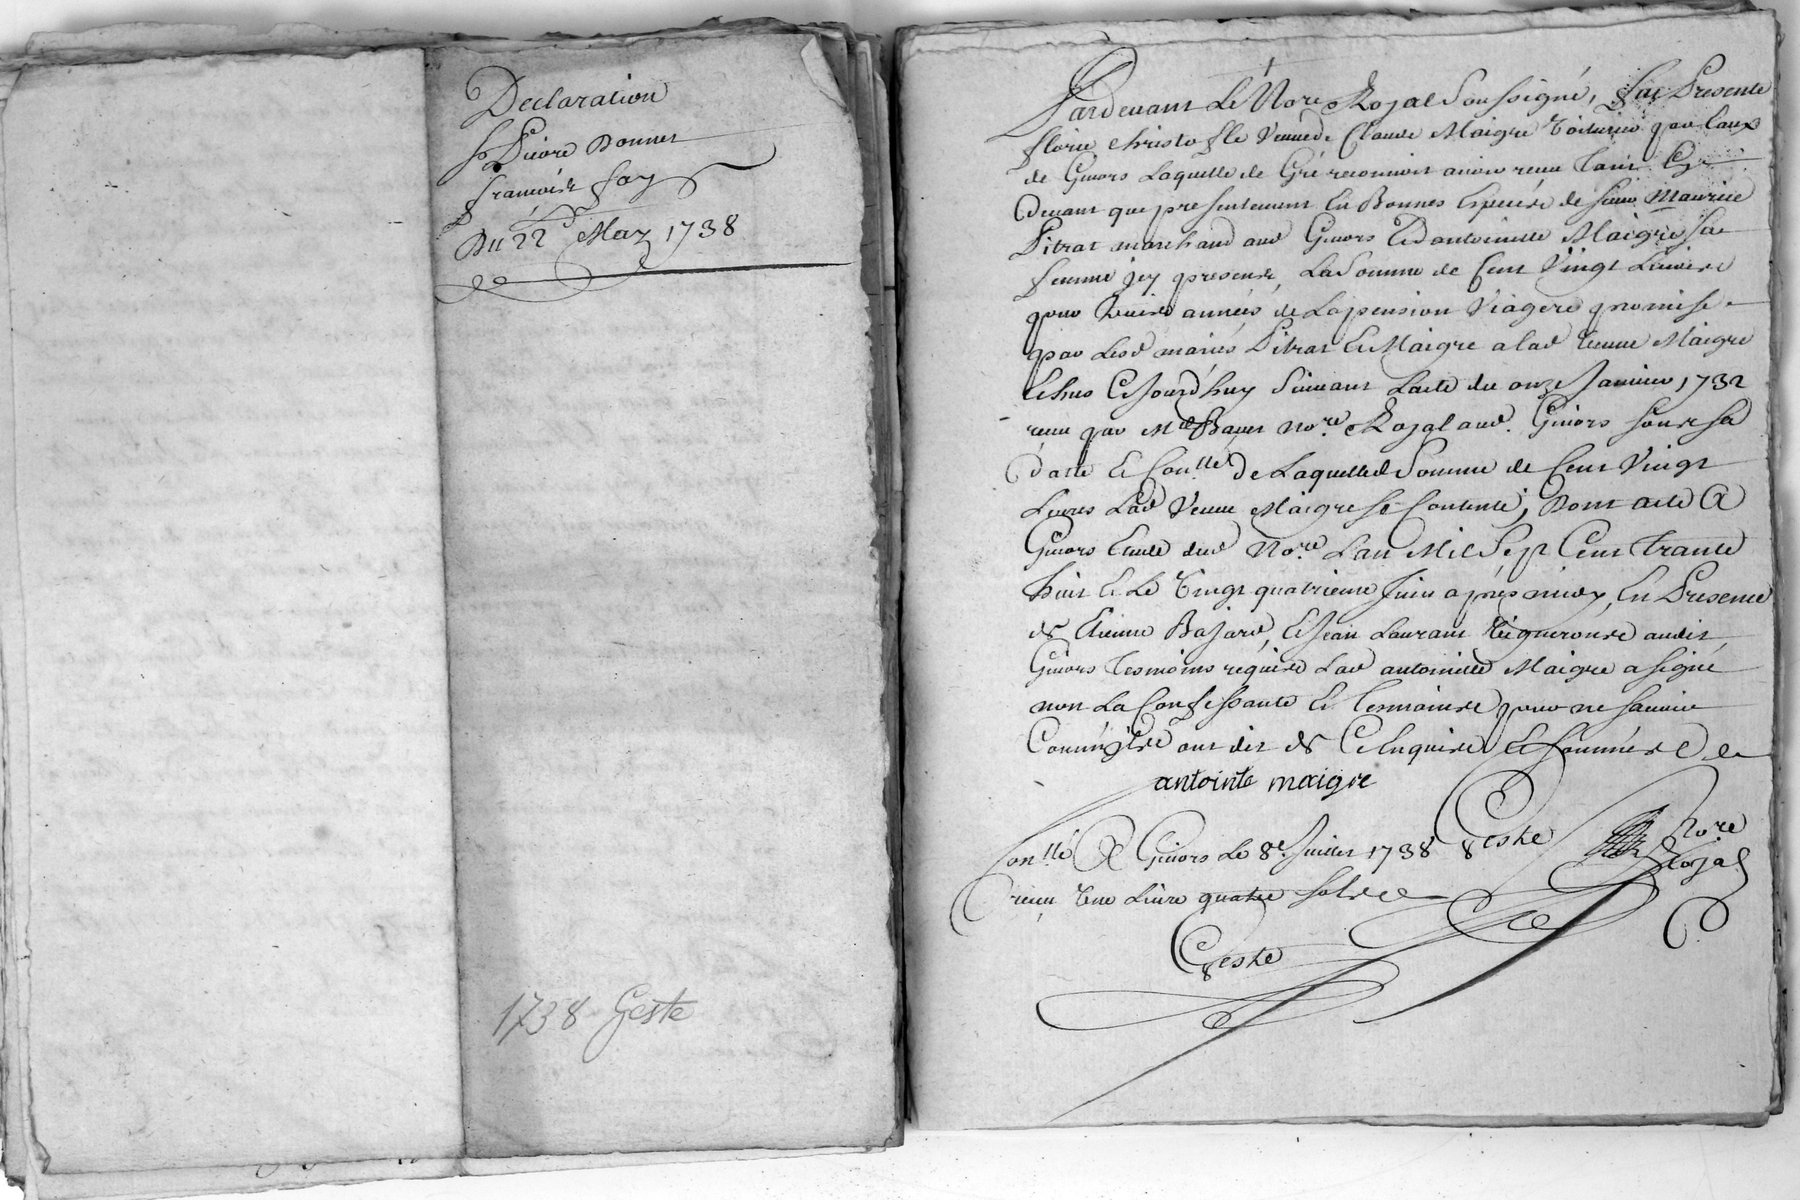 Declaration
Pierre Bonnet
francoise fay
Du 22e May 1738
1738 Geste
Pardevant Le No.re Royal Soussigné, fut Presente
florie christofle Veuve de Claude Maigre Voiturier par Eaux
de Givors Laquelle de Gré reconnoit avoir receu Tant Cy
devant que presentement En Bonnes Especes de sieur Maurice
Pitrat marchand aud Givors Et d'antoinette Maigre sa
femme icy presents, La Somme de Cent Vingt Livres
pour années de La pension Viagere promise
par Lesd mariés Pitrat Et Maigre a lad Veuve Maigre
Echus Cejourd'huy Suivant L'acte du onze Janvier 1732
receu par Me No.re Royal aud. Givors sous sa
datte Et Con.llé de Laquelle Somme de Cent Vingt
Livres Lad Veuve Maigre se Contente, Dont acte A
Givors Etude dud No.re L'an Mil Sept Cent Trante
huit Et Le Vingt quatrieme Juin apres midy, En Presence
de Etienne Bajard, Et Jean Laurant Vigneron audit
Givors Tesmoins requis Lad antoinette Maigre a signé
non La Confessante Et Tesmoins pour ne savoir
Comm'ils ont dit de Ce Enquis Et sommés
antointe maigre
Con.llé A Givors Le 8e. Juillet 1738 Geste No.re
Royal
receu Une Livre quatre sols
Geste